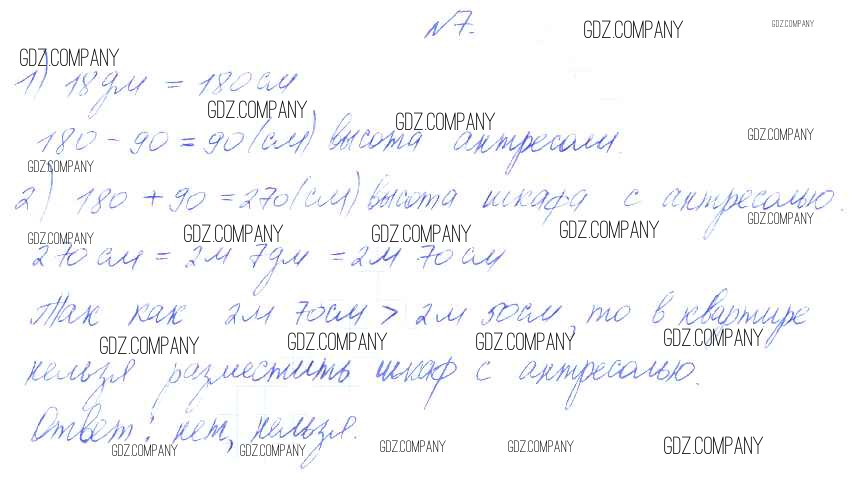 №7.
GDZ.COMPANY GDZ.COMPANY
GDZ.COMPANY
1) 18 дм = 180 см
GDZ.COMPANY GDZ.COMPANY
180 - 90 = 90 (см) высота антресоли.
GDZ.COMPANY
GDZ.COMPANY
2) 180 + 90 = 270 (см) высота шкафа с антресолью.
GDZ.COMPANY
GDZ.COMPANY GDZ.COMPANY GDZ.COMPANY GDZ.COMPANY
270 см = 2м 7дм = 2м 70 см
Так как 2м 70см > 2м 50см, то в квартире
GDZ.COMPANY GDZ.COMPANY GDZ.COMPANY GDZ.COMPANY
нельзя разместить шкаф с антресолью.
Ответ: нет, нельзя.
GDZ.COMPANY GDZ.COMPANY GDZ.COMPANY GDZ.COMPANY GDZ.COMPANY